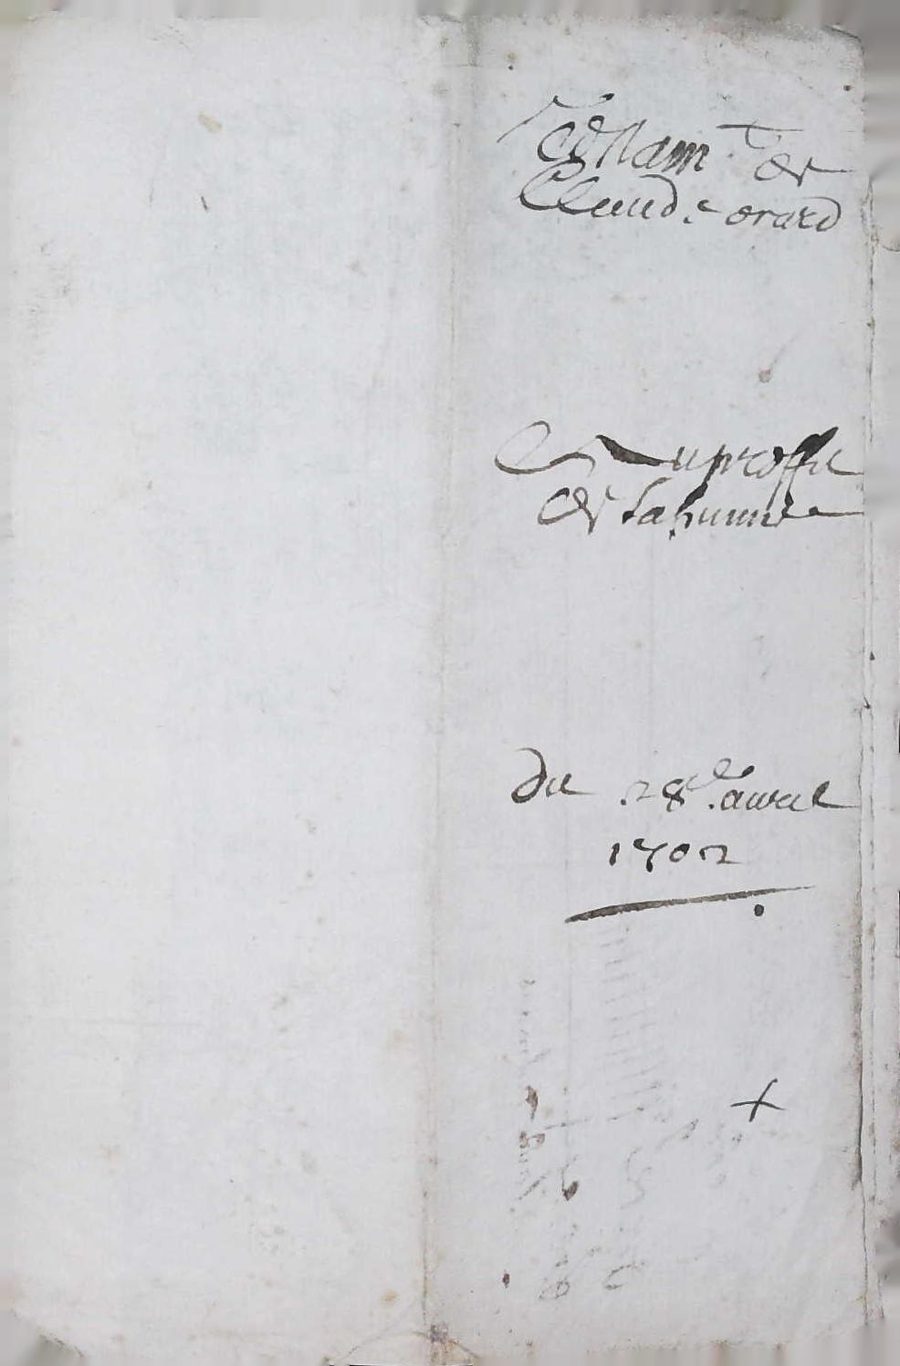 Testam.t de
Claude erard
Au proffit
de
Du 28.e auril
1702